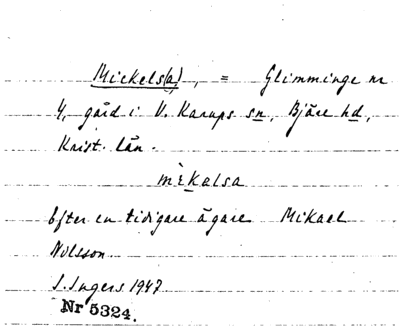 Mickels(a), = Glimminge nr
4, gård i V. Karups sn, Bjäre hd,
Krist. län.
mìkelsa
Efter en tidigare ägare Mikael
Nilsson
I. Ingers 1947
Nr 5324.